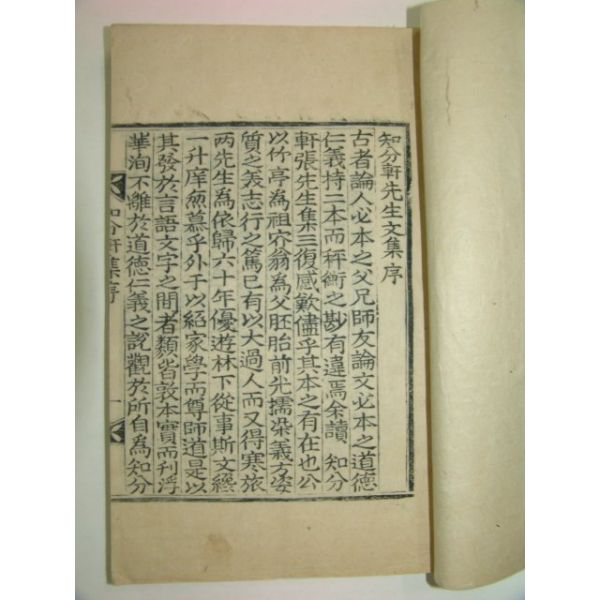 知分軒先生文集序
古者論人必本之父兄師友論文必本之道德
仁義持二本而秤衡之尠有違焉余讀 知分
軒張先生集三復感歎儘乎其本之有在也公
以竹亭為祖 翁為父胚胎前光擩染義方姿
質之義志行之篤已有以大過人而又得寒旅
兩先生為依歸六十年優遊林下從事斯文纔
一升庠 慕乎外于以紹家學而尊師道是以
其發於言語文字之間者類皆敦本實而利浮
華洵不離於道德仁義之說觀於所自為知分
知分軒集序 一